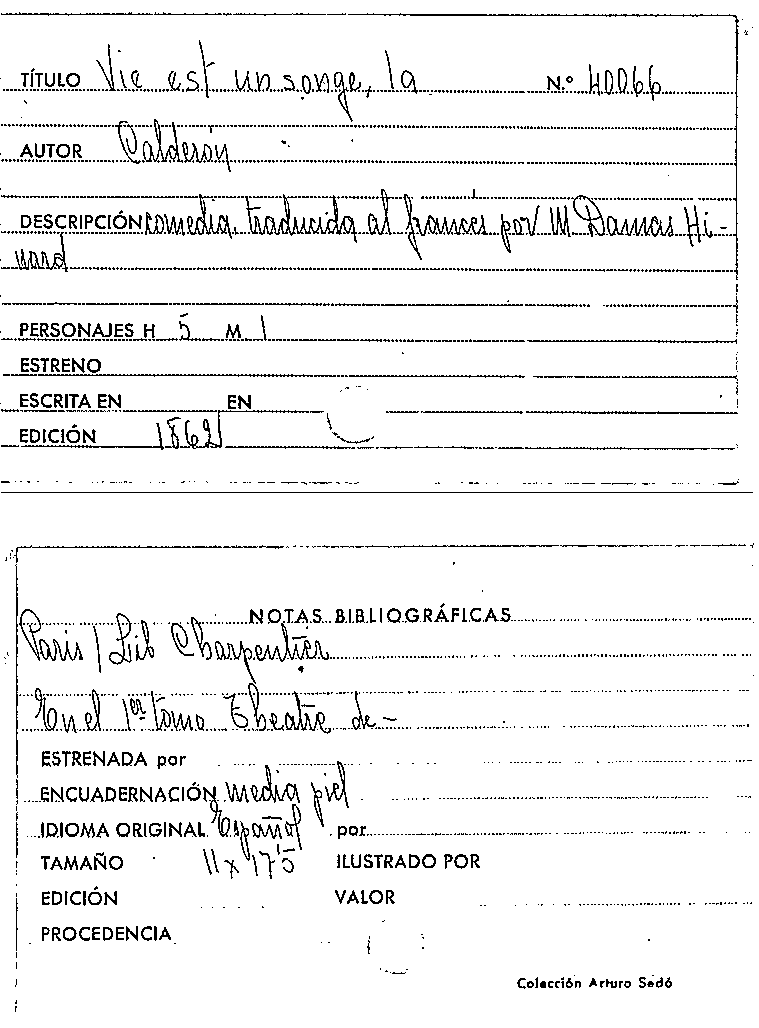 TÍTULO Vie est un songe, la N.º 40066
AUTOR Calderón
DESCRIPCIÓN comedia, traducida al francés por M Damas Hi-
nard
PERSONAJES H 5 M 1
ESTRENO
ESCRITA EN EN
EDICIÓN 1862
NOTAS BIBLIOGRÁFICAS
Paris / Lib Charpentier
En el 1er tomo Theatre de -
ESTRENADA por
ENCUADERNACIÓN media piel
IDIOMA ORIGINAL Español por
TAMAÑO 11 x 175 ILUSTRADO POR
EDICIÓN VALOR
PROCEDENCIA
Colección Arturo Sedó